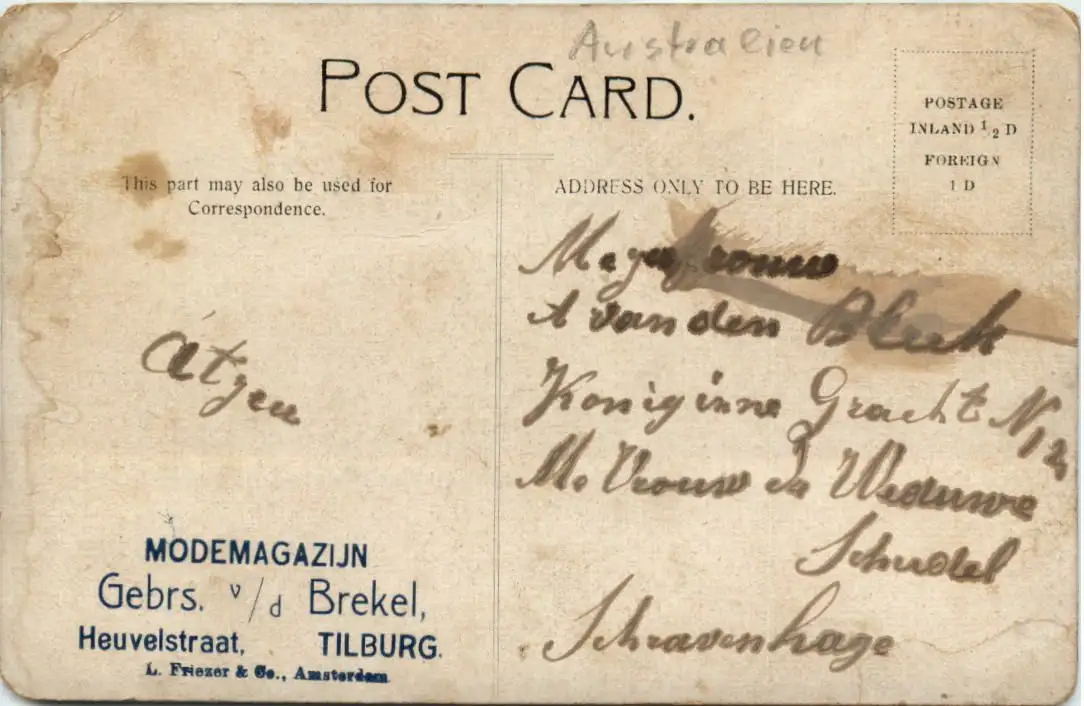 Australien
POST CARD.
POSTAGE
INLAND 1/2 D
FOREIGN
1 D
This part may also be used for
Correspondence.
ADDRESS ONLY TO BE HERE.
A van den Bleek
Koniginne Gracht N 12
Me Vrouw de Weduwe
Schudel
Schravenhage
MODEMAGAZIJN
Gebrs. v/d Brekel,
Heuvelstraat, TILBURG.
L. Friezer & Co., Amsterdam